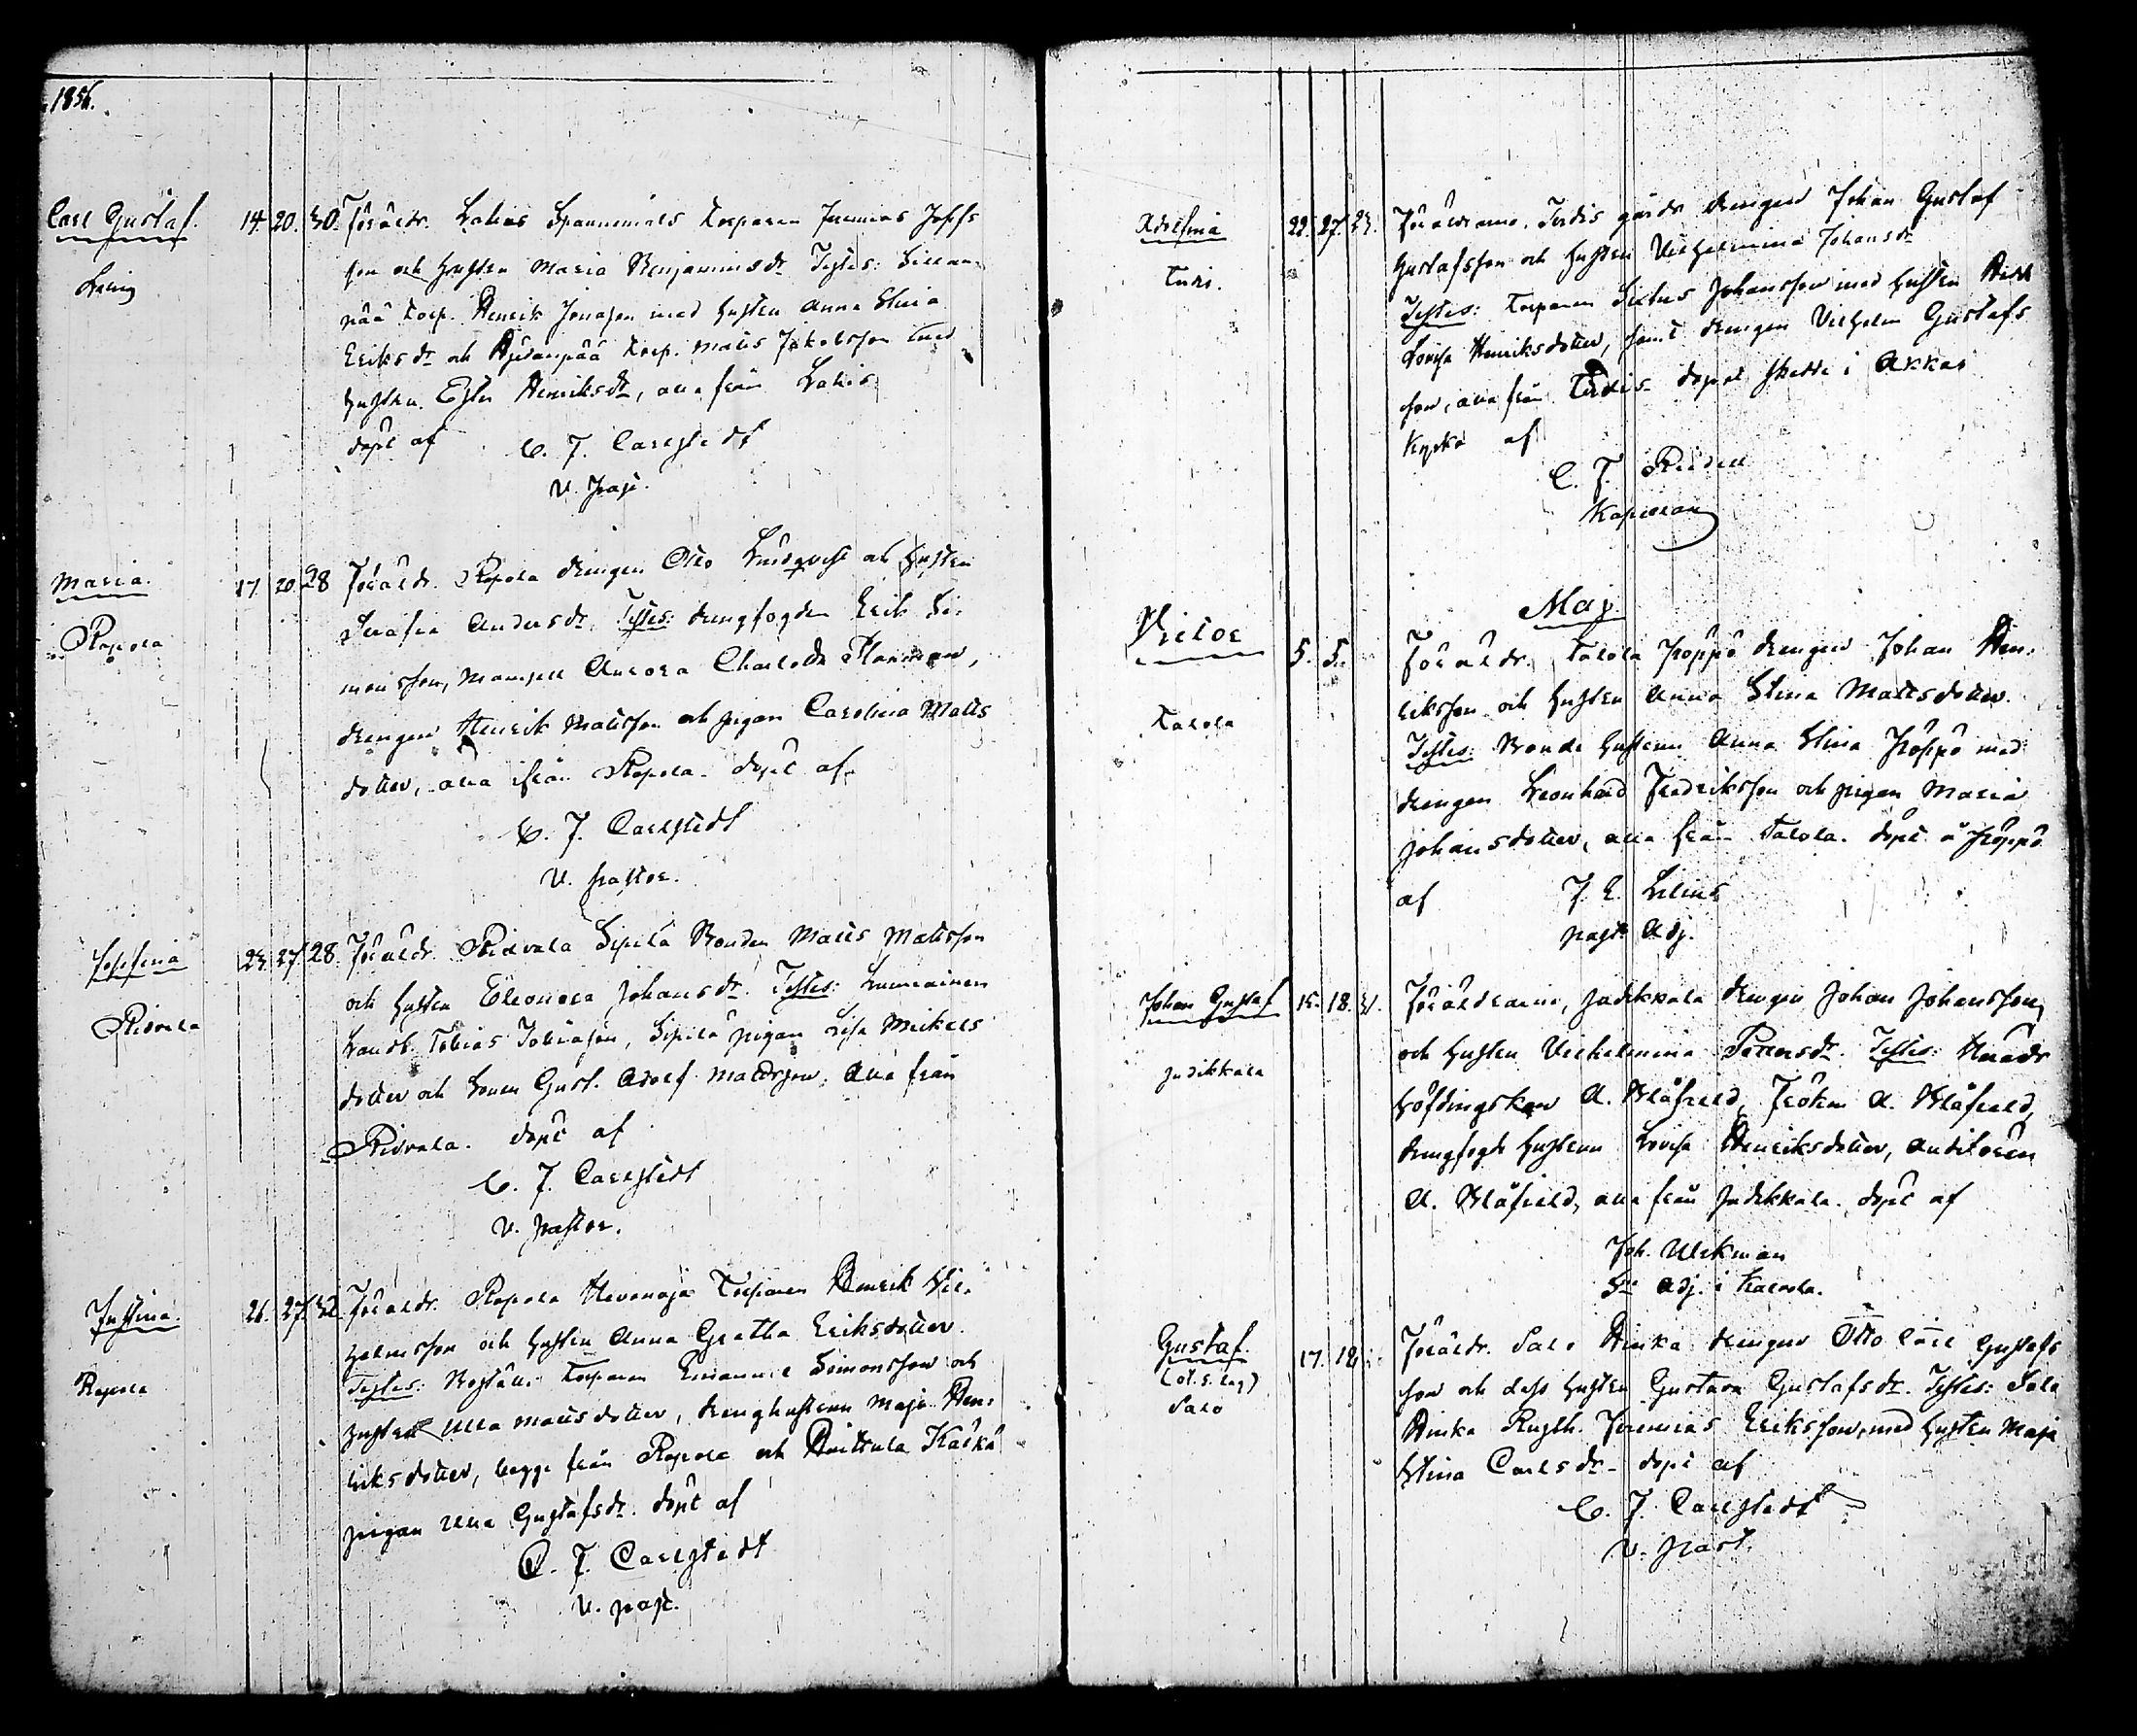 1856.
Carl Gustaf. 14. 20. 30. Föräldr. Lahis Torparen Jeremias Josefs
son och hustru Maria Benjaminsdr Testes:
pää Torp. Henrik Jonasson med hustru Anna Stina
Eriksdr och Torp. Matts Jakobsson med
hustru Ester Henriksdr, alla från Lahis
döpt af C. J. Carlstedt
V. past.
Maria. 17. 20. 28 Föräldr. Rapola drengen Otto Lindqvist och hustru
Rapola
Serafia Andersdr. Testes: drengfogden Erik Si-
monsson, Mamsell Aurora Charlotta
drengen Henrik Mattsson och pigan Carolina Matts
dotter, alla ifrån Rapola. döpt af
C. J. Carlstedt
V. pastor.
Josefina 23. 27. 28. Föräldr. Ridvala Sipilä Bonden Matts Mattsson
Ridvala
och hustru Eleonora Johansdr. Testes:
Landb. Tobias Tobiasson, Sipilä pigan Lisa Mickels
dotter och Sonen Gust. Adolf Mattsson, alla från
Ridvala. döpt af
C. J. Carlstedt
V. pastor.
Justina. 26. 27. 32. Föräldr. Rapola Hevonoja Torparen Henrik Vil-
helmsson och hustru Anna Gretha Eriksdotter.
Rapola
Testes: Torparen Emanuel Simonsson och
hustru Ulla Mattsdotter, dränghustrun Maja Hen-
riksdotter, begge från Rapola och Huittula Kaskä
pigan Ulla Gustafsdr. döpt af
C. J. Carlstedt
V. past.
Adolfina 22. 27. 23. Föräldrarne, gårds drengen Johan Gustaf
Gustafsson och hustru Vilhelmina Johansdr
Testes: Torparen Johansson med hustru
Lovisa Henriksdotter, samt drengen Vilhelm Gustafs
son, alla från döpet skedde i Akkas
kyrka af
C. F.
Kaplan
Maj
Victor 5. 5. Föräldr. Tarola Pöppö drengen Johan Hen-
riksson och hustru Anna Stina Mattsdotter.
Tarola
Testes: Bonde hustrun Anna Stina Pöppö med
drengen Leonhard Fredriksson och pigan Maria
Johansdotter, alla från Tarola. döpt å Pöppö
af J. E. Lilius
past. Adj.
Johan Gustaf 15. 18. 31. Föräldrarne, Judikkala drengen Johan Johansson,
och hustru Vilhelmina Testes: Härads
Judikkala
höfdingskan A. Blåfield, Fröken A. Blåfield,
drengfogde hustrun Lovisa Henriksdotter, Auditören
A. Blåfield, alla från Judikkala. döpt af
Joh. Ulrikman
Adj. i Kalvola.
Gustaf. 17. 18. Föräldr. Salo Hinka drengen Otto Carl Gustafs
son och dess hustru Gustava Gustafsdr. Testes: Salo
Salo
Hinka Rusth. Jeremias Eriksson, med hustru Maja
Stina Carlsdr. döpt af
C. J. Carlstedt
v. past.